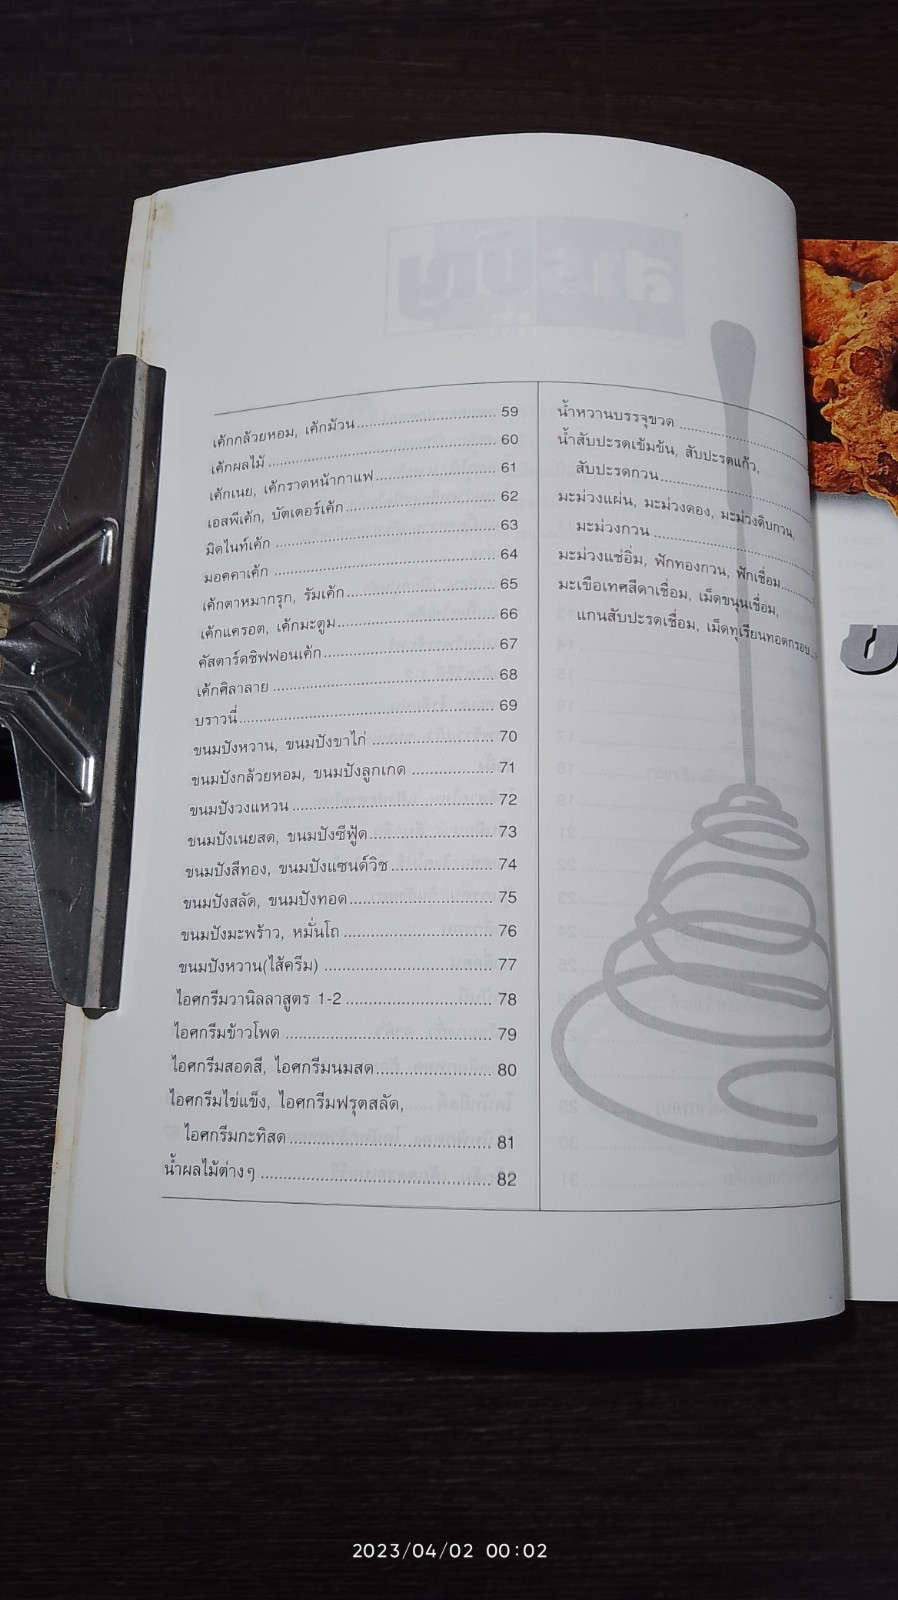 เค้กกล้วยหอม, เค้กม้วน................................ 59
เค้กผลไม้ .................................................. 60
เค้กเนย, เค้กราดหน้ากาแฟ........................... 61
เอสพีเค้ก, บัตเตอร์เค้ก................................ 62
มิดไนท์เค้ก ................................................ 63
มอคคาเค้ก ................................................ 64
เค้กตาหมากรุก, รัมเค้ก................................ 65
เค้กแครอต, เค้กมะตูม.................................. 66
คัสตาร์ดชิฟฟอนเค้ก.................................... 67
เค้กศิลาลาย ............................................... 68
บราวนี่...................................................... 69
ขนมปังหวาน, ขนมปังขาไก่ .......................... 70
ขนมปังกล้วยหอม, ขนมปังลูกเกด .................. 71
ขนมปังวงแหวน .......................................... 72
ขนมปังเนยสด, ขนมปังซีฟู้ด.......................... 73
ขนมปังสีทอง, ขนมปังแซนด์วิช ..................... 74
ขนมปังสลัด, ขนมปังทอด.............................. 75
ขนมปังมะพร้าว, หมั่นโถ ............................... 76
ขนมปังหวาน(ไส้ครีม) .................................. 77
ไอศกรีมวานิลลาสูตร 1-2............................... 78
ไอศกรีมข้าวโพด ......................................... 79
ไอศกรีมสอดสี, ไอศกรีมนมสด........................ 80
ไอศกรีมไข่แข็ง, ไอศกรีมฟรุตสลัด,
ไอศกรีมกะทิสด........................................... 81
น้ำผลไม้ต่างๆ ............................................. 82
น้ำหวานบรรจุขวด ................................
น้ำสับปะรดเข้มข้น, สับปะรดแก้ว,
สับปะรดกวน................................
มะม่วงแผ่น, มะม่วงดอง, มะม่วงดิบกวน,
มะม่วงกวน ................................
มะม่วงแช่อิ่ม, ฟักทองกวน, ฟักเชื่อม........
มะเขือเทศสีดาเชื่อม, เม็ดขนุนเชื่อม,
แกนสับปะรดเชื่อม, เม็ดทุเรียนทอดกรอบ...
2023/04/02 00:02